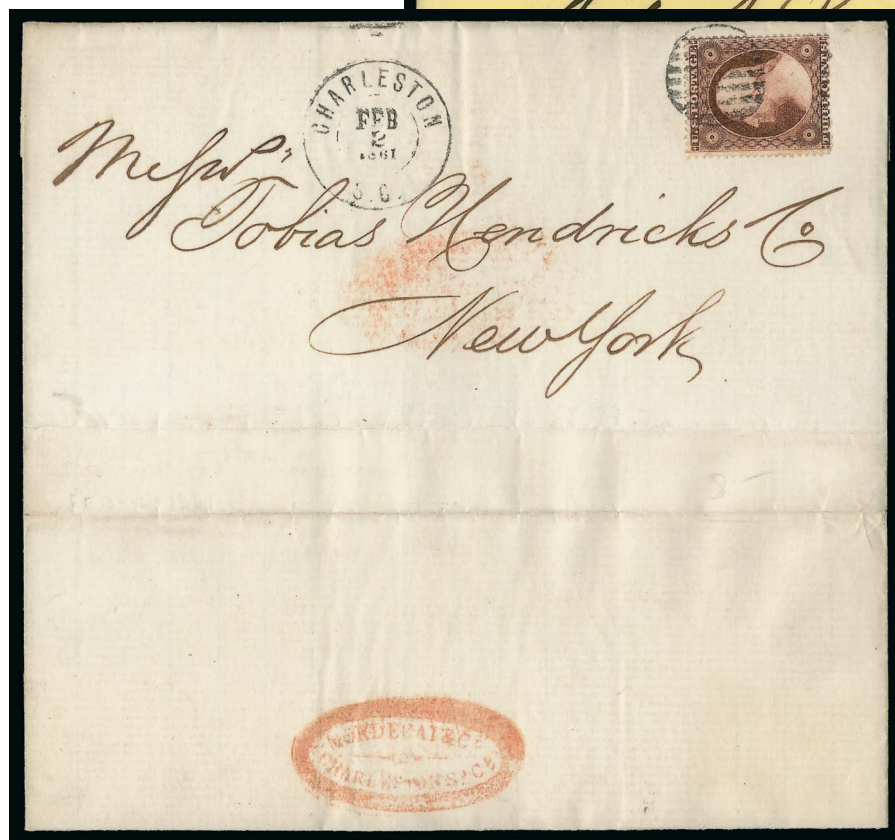 CHARLESTON
FEB
2
1861
S.C.
U.S. POSTAGE
Messrs
Tobias Hendricks Co
New York
MORDECAI & Co
CHARLESTON S.C.